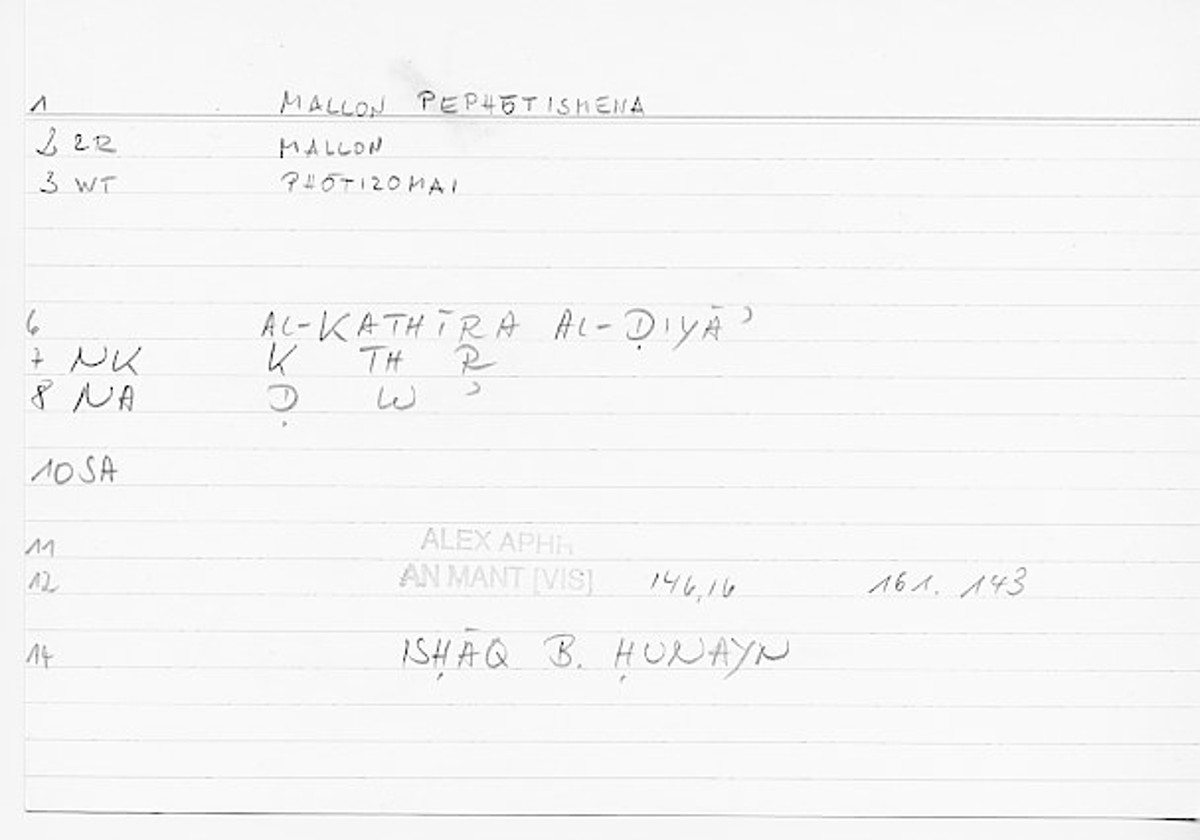 1 MALLON PEPHŌTISMENA
2 2R MALLON
3 WT PHŌTIZOMAI
6 AL-KATHĪRA AL-ḌIYĀʾ
7 NK K TH R
8 NA Ḍ W ʾ
10 SA
11 ALEX APHR
12 AN MANT [VIS] 146,16 161. 143
14 ISḤĀQ B. ḤUNAYN